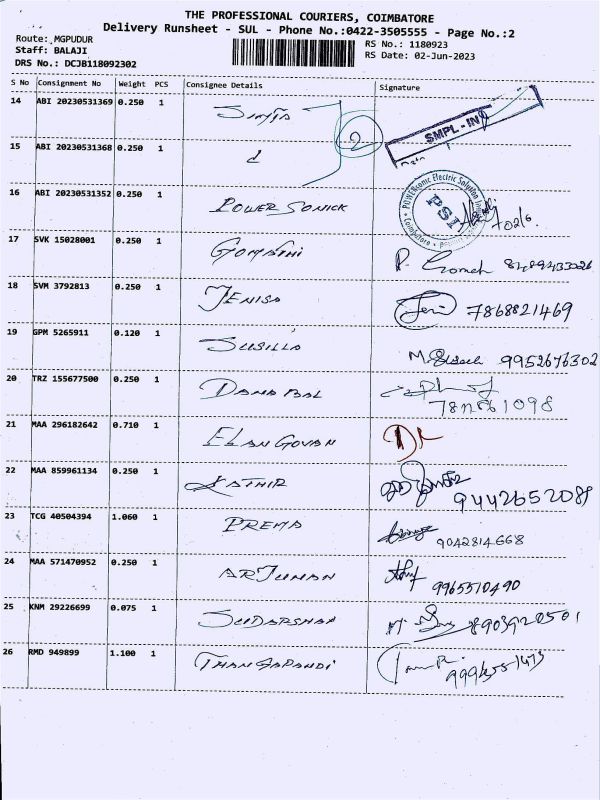 THE PROFESSIONAL COURIERS, COIMBATORE
Delivery Runsheet - SUL - Phone No.:0422-3505555 - Page No.:2
Route: MGPUDUR
RS No.: 1180923
Staff: BALAJI
RS Date: 02-Jun-2023
DRS No.: DCJB118092302
S No Consignment No Weight PCS Consignee Details Signature
14 ABI 20230531369 0.250 1
2
SMPL - IN
15 ABI 20230531368 0.250 1
16 ABI 20230531352 0.250 1 POWER SONICK
PSI
17 SVK 15028001 0.250 1 GOMATHI
18 SVM 3792813 0.250 1 JENISA 7868821469
19 GPM 5265911 0.120 1 SUSILLA 9952676302
20 TRZ 155677500 0.250 1 DANA BAL
21 MAA 296182642 0.710 1 ELANGOVAN
22 MAA 859961134 0.250 1 KATHIR 9442652089
23 TCG 40504394 1.060 1 PREMA 9042814668
24 MAA 571470952 0.250 1 ARJUNAN 9965510490
25 KNM 29226699 0.075 1 SUDARSHAN 8903920501
26 RMD 949899 1.100 1 THANGAPANDI